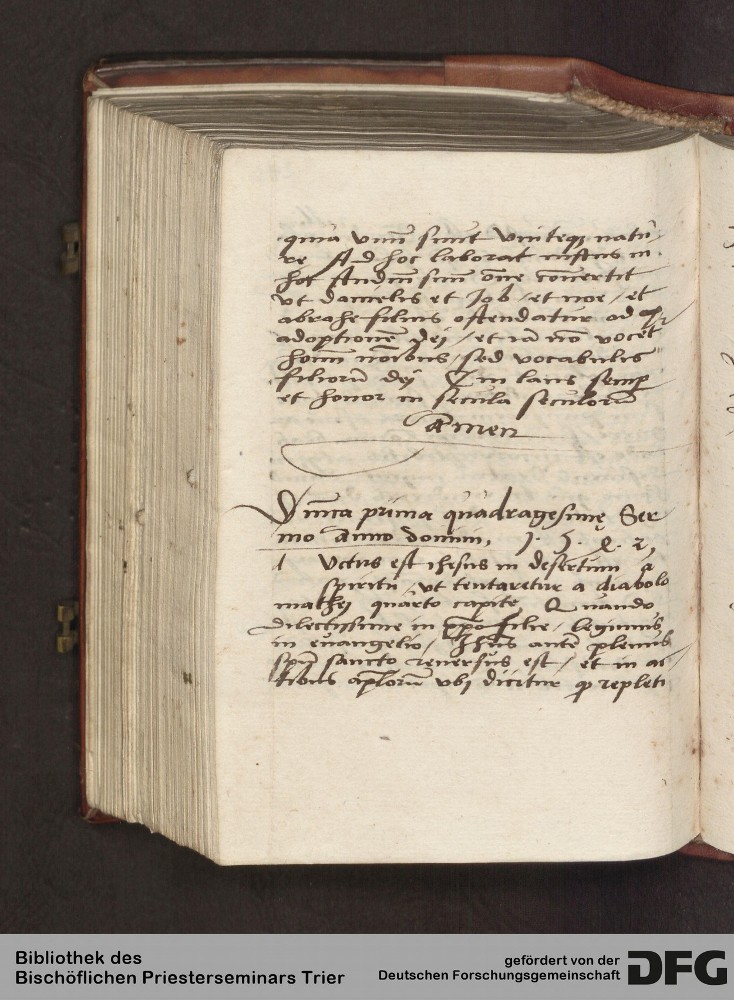 quia vnū sunt vniteqꝫ natu-
re / Ad hoc laborat iustus in
hoc studiū suū om̄e cōuertit
vt danielis et Job / et noe / et
abrahe filius ostendatur ad
adoptionē Dej / et iā nō vocet̄
hoīm noīibus / sed vocabulis
filiorū dej Cui laus semꝑ
et honor in secula seculorū
Amen
Dnīica prima quadragesimę Ser
mo Anno domini, 1. 5. 4. 2,
Uctus est ihesus in desertum a
spiritu / ut tentaretur a diabolo
mathej quarto capite, Quando
dilectissime in xp̄o filie, legimus
in euangelio / Ihūs autē plenus
spū sancto reuersus est / et in ac-
tibus apl̄orū vbj dicitur ꝙ repleti
Bibliothek des
Bischöflichen Priesterseminars Trier
gefördert von der
Deutschen Forschungsgemeinschaft
DFG